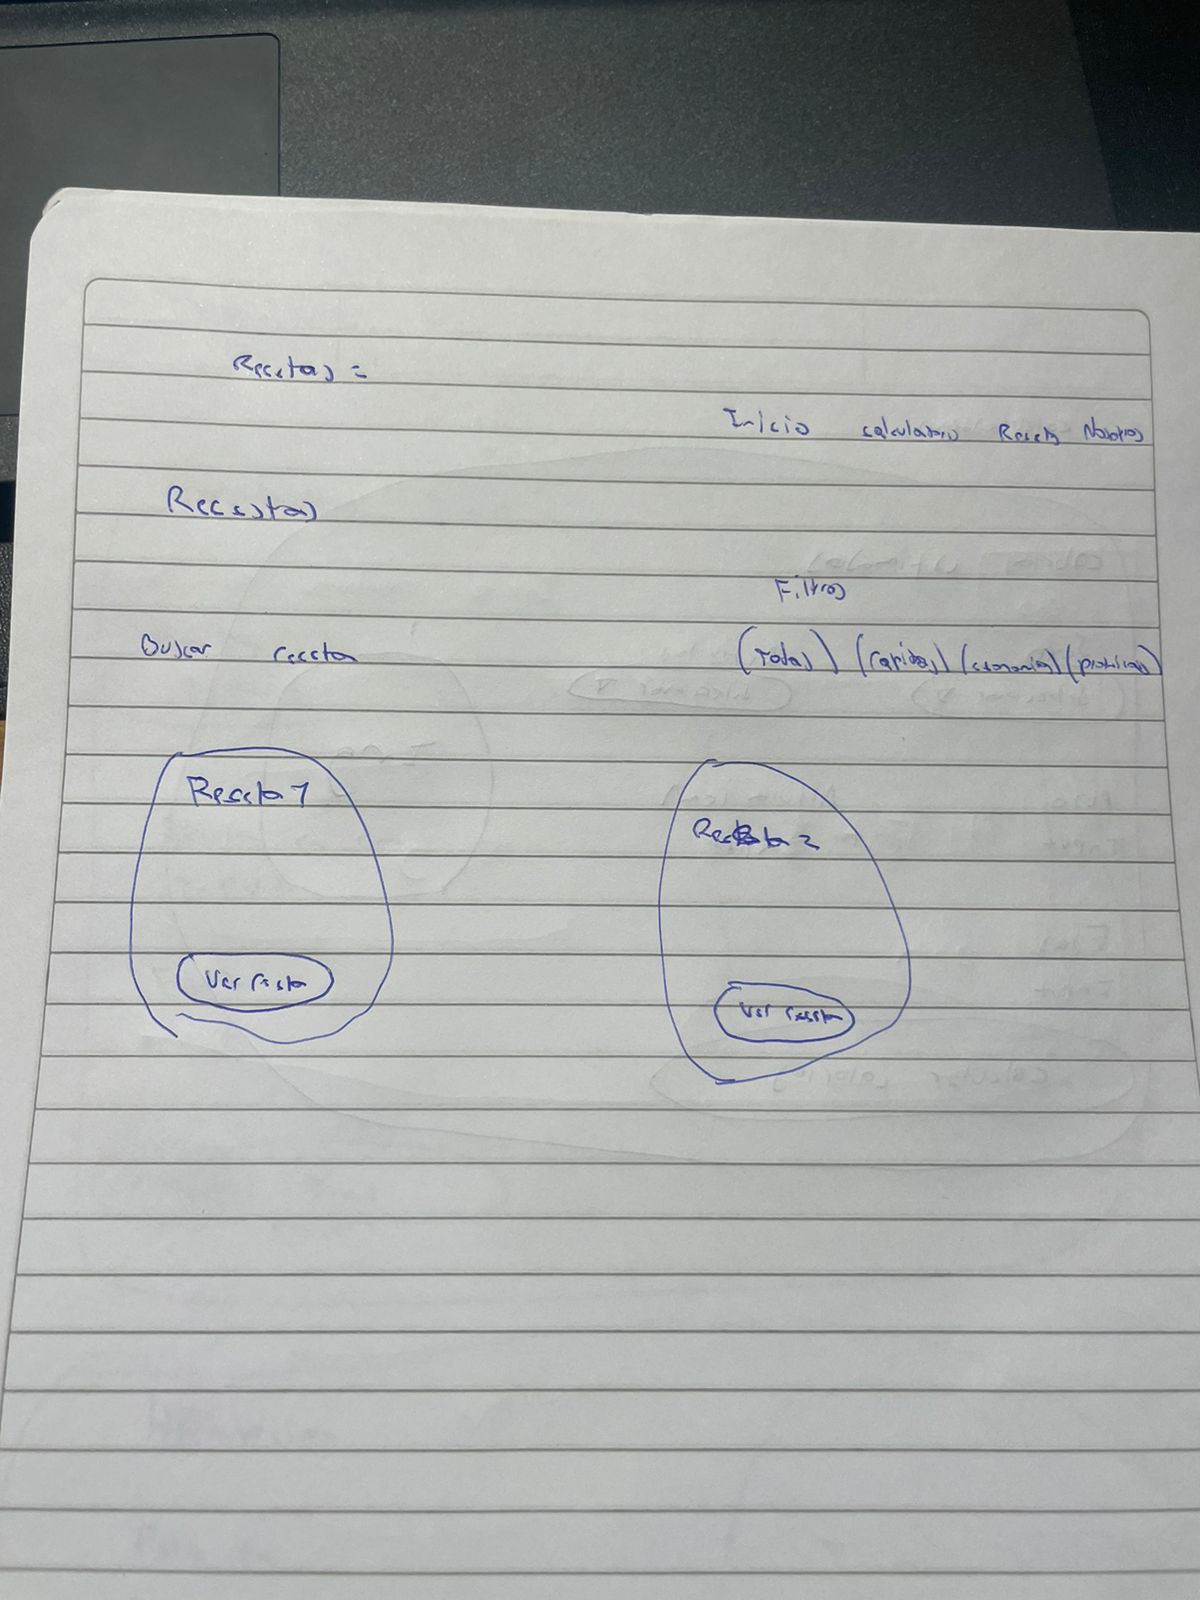 Recetas =
Inicio calculadora Receta Nosotros
Recestas
Filtros
Buscar receta (Todas) (rapidas) (economicas) (proteicas)
Receta 1
Receta 2
Ver receta
Ver receta